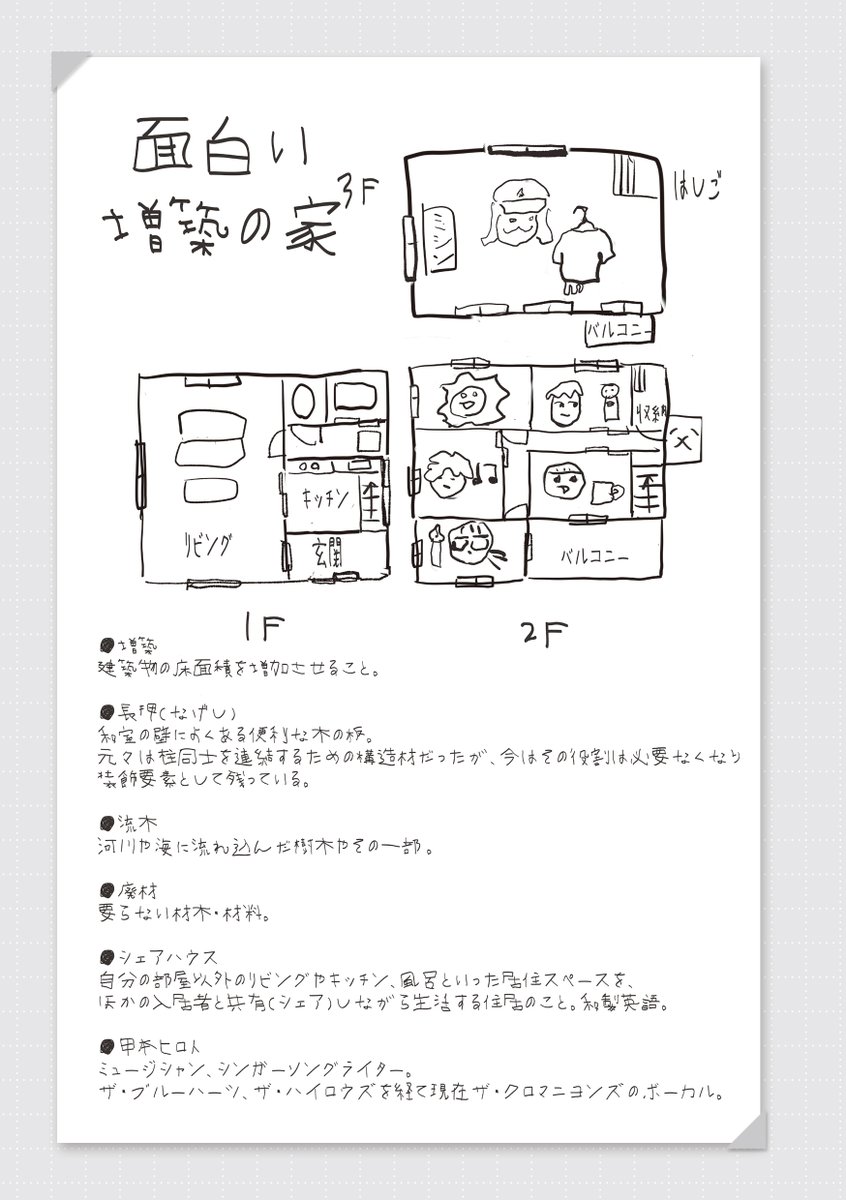 面白い
増築の家
3F
はしご
バルコニー
収納
父
キッチン
リビング
玄関
バルコニー
1F
2F
●増築
建築物の床面積を増加させること。
●長押(なげし)
和室の壁によくある便利な木の板。
元々は柱同士を連結するための構造材だったが、今はその役割は必要なくなり
装飾要素として残っている。
●流木
河川や海に流れ込んだ樹木やその一部。
●廃材
要らない材木・材料。
●シェアハウス
自分の部屋以外のリビングやキッチン、風呂といった居住スペースを、
ほかの入居者と共有(シェア)しながら生活する住居のこと。和製英語。
●甲本ヒロト
ミュージシャン、シンガーソングライター。
ザ・ブルーハーツ、ザ・ハイロウズを経て現在ザ・クロマニヨンズのボーカル。